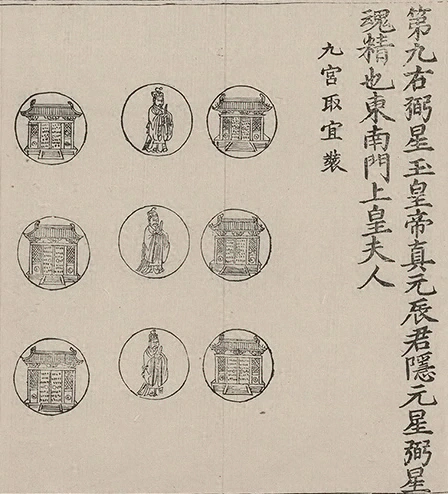 第九右弼星玉皇帝真元辰君隱元星弼星
魂精也東南門上皇夫人
九宮取宜裝